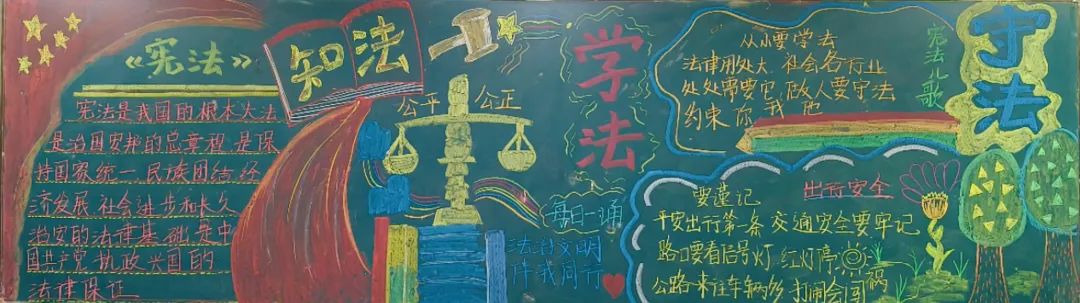 《宪法》
宪法是我国的根本大法
是治国安邦的总章程,是保
持国家统一,民族团结,经
济发展,社会进步和长久
治安的法律基础,是中
国共产党执政兴国的
法律保证
知法
公平
公正
学法
每日一诵
法治文明
伴我同行
从小要学法
法律用处大,社会各行业
处处需要它,做人要守法
约束你我他
宪法儿歌
守法
要谨记
出行安全
平安出行第一条,交通安全要牢记
路口要看信号灯,红灯停
公路来往车辆多,打闹会闯祸